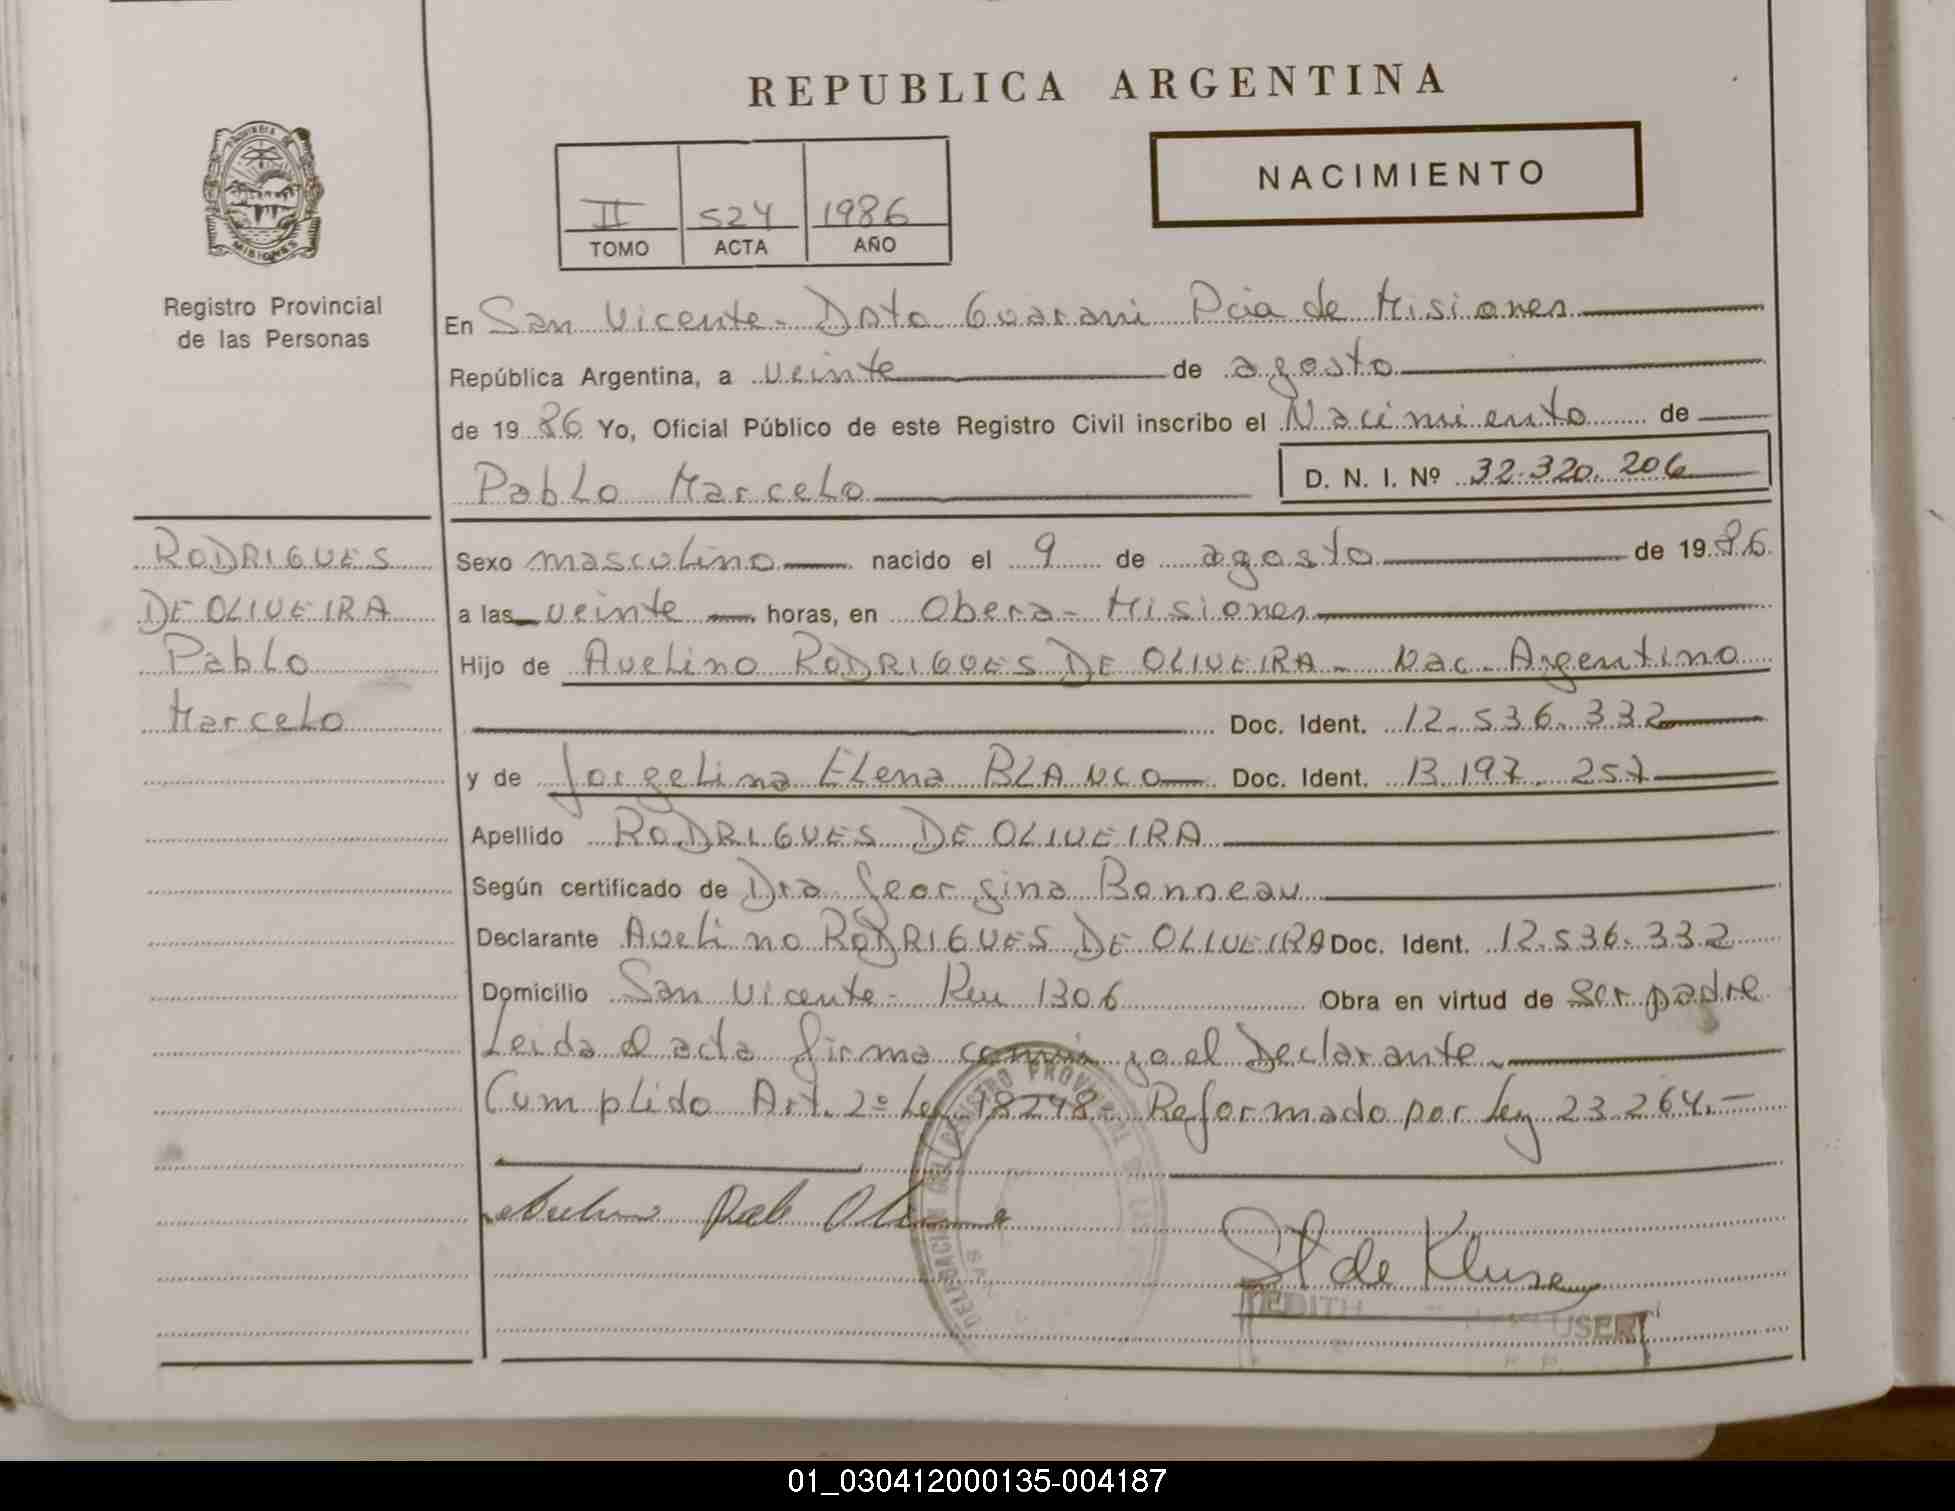 REPUBLICA ARGENTINA
NACIMIENTO
II 524 1986
TOMO ACTA AÑO
PROVINCIA DE
MISIONES
Registro Provincial
de las Personas
En San Vicente - Dpto Guarani Pcia de Misiones
República Argentina, a veinte de agosto
de 1986 Yo, Oficial Público de este Registro Civil inscribo el Nacimiento de
Pablo Marcelo D. N. I. Nº 32.320.206
RODRIGUES
DE OLIVEIRA
Pablo
Marcelo
Sexo masculino nacido el 9 de agosto de 1986
a las veinte horas, en Obera - Misiones
Hijo de Avelino RODRIGUES DE OLIVEIRA - Nac. Argentino
Doc. Ident. 12.536.332
y de Jorgelina Elena BLANCO Doc. Ident. 13.197.257
Apellido RODRIGUES DE OLIVEIRA
Según certificado de Dra Georgina Bonneau
Declarante Avelino RODRIGUES DE OLIVEIRA Doc. Ident. 12.536.332
Domicilio San Vicente - Km 1306 Obra en virtud de ser padre
Leida el acta firma conmigo el Declarante
Cumplido Art. 2º Ley 18248 - Reformado por Ley 23.264.-
DELEGACION DEL REGISTRO PROVINCIAL DE LAS
SAN
de Kluse
EDITH
01_030412000135-004187